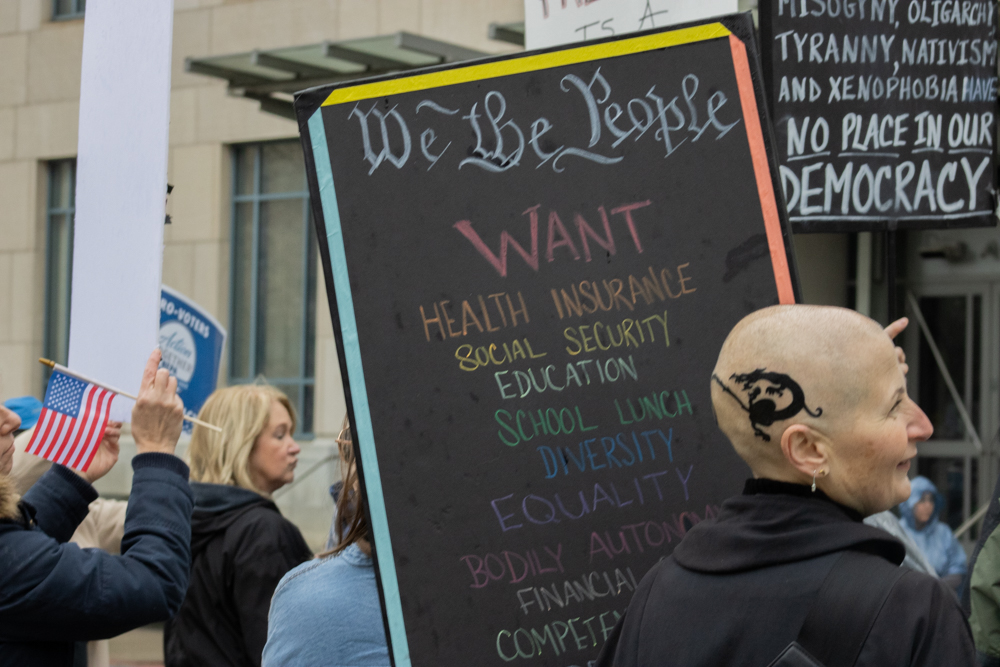 IS A
We the People
WANT
HEALTH INSURANCE
SOCIAL SECURITY
EDUCATION
SCHOOL LUNCH
DIVERSITY
EQUALITY
BODILY AUTONOMY
FINANCIAL
MISOGYNY, OLIGARCHY
TYRANNY, NATIVISM
AND XENOPHOBIA HAVE
NO PLACE IN OUR
DEMOCRACY
RO-VOTERS
Action
TOGETHER